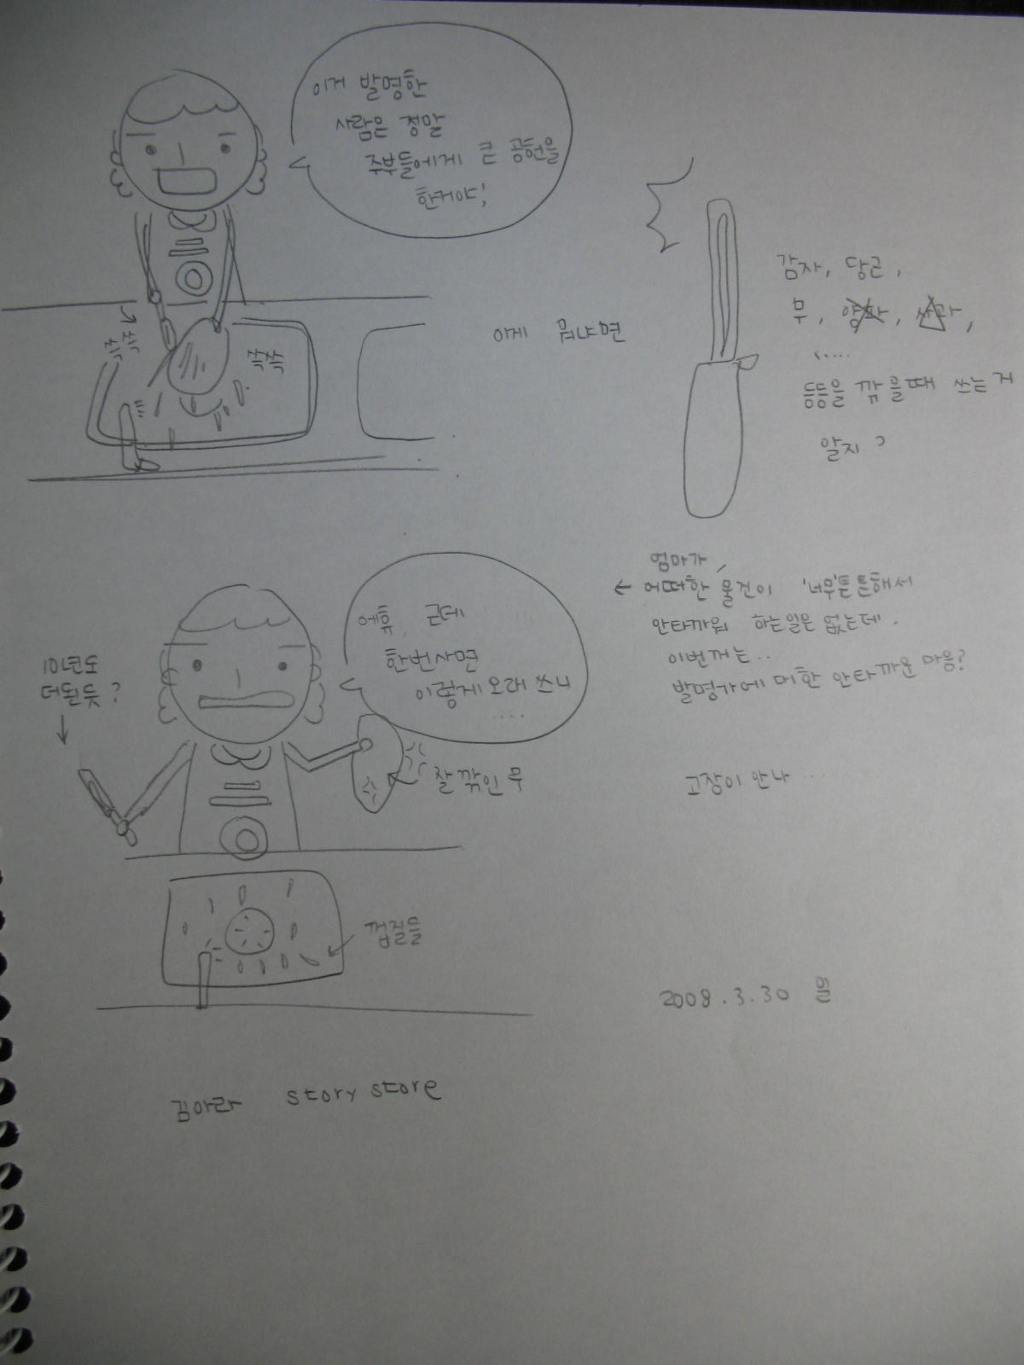 이거 발명한
사람은 정말
주부들에게 큰 공헌을
한거야!
쓱쓱
쓱쓱
이게 뭐냐면
감자, 당근,
무, 양파, 사과,
.....
등등을 깎을때 쓰는거
알지?
에휴, 근데
한번사면
이렇게 오래 쓰니
....
10년도
더된듯?
잘 깎인 무
껍질들
엄마가,
← 어떠한 물건이 '너무'튼튼해서
안타까워 하는일은 없는데.
이번꺼는..
발명가에 대한 안타까운 마음?
고장이 안나...
2008.3.30 일
김아라 story store